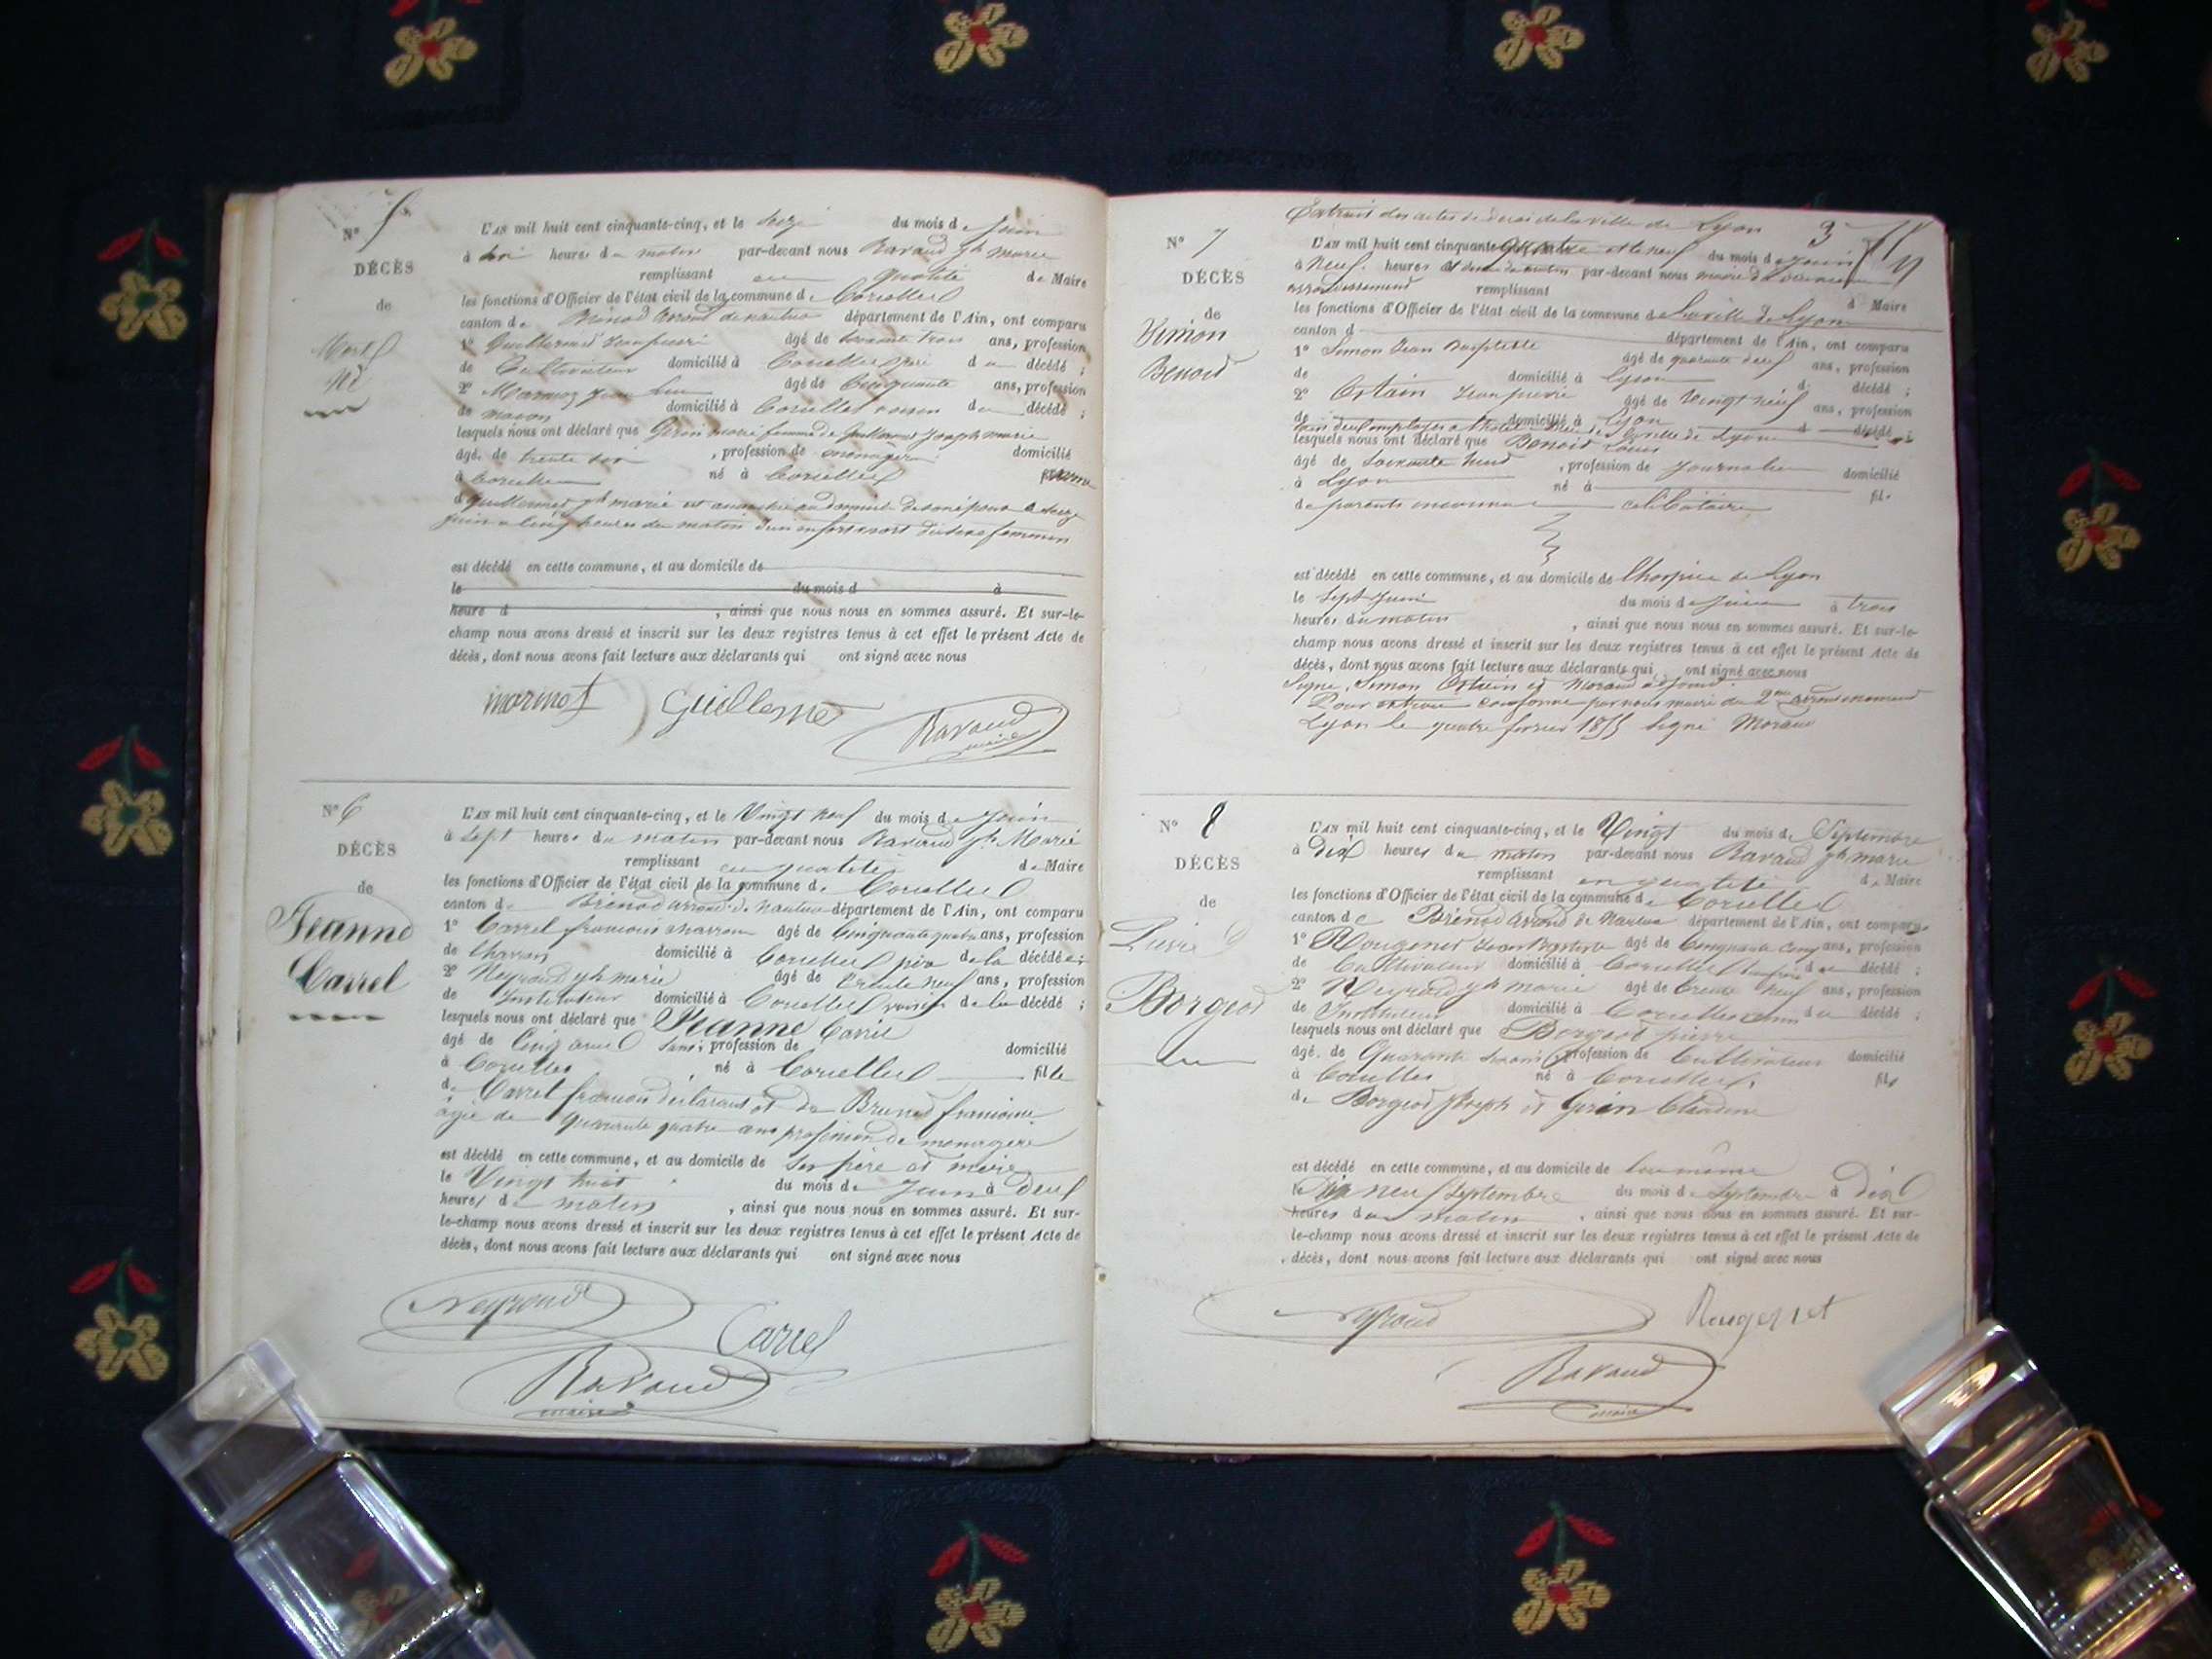 N° 5
DÉCÈS
de
Mort
Né
L'AN mil huit cent cinquante-cinq, et le seize du mois de Juin
à six heures du matin par-devant nous Ravaud Jh Marie
remplissant en qualité de Maire
les fonctions d'Officier de l'état civil de la commune de Corcelles
canton de Brénod arrond. de Nantua département de l'Ain, ont comparu
1° Guillermet Jean pierre âgé de soixante trois ans, profession
de Cultivateur domicilié à Corcelles père du décédé ;
2° Marmoz Jean âgé de Cinquante ans, profession
de maçon domicilié à Corcelles voisin du décédé ;
lesquels nous ont déclaré que Girin marie femme de Guillermet Joseph marie
âgé. de trente six , profession de ménagère domicilié
à Corcelles né à Corcelles femme
de guillermet Jh marie est accouchée au domicile de son époux le seize
juin à cinq heures du matin d'un enfant mort du sexe féminin
est décédé en cette commune, et au domicile de
le du mois d à
heure d , ainsi que nous nous en sommes assuré. Et sur-le-
champ nous avons dressé et inscrit sur les deux registres tenus à cet effet le présent Acte de
décès, dont nous avons fait lecture aux déclarants qui ont signé avec nous
Guillermet
Ravaud
maire
N° 6
DÉCÈS
de
Jeanne
Carrel
L'AN mil huit cent cinquante-cinq, et le Vingt neuf du mois de Juin
à sept heures du matin par-devant nous Ravaud Jh Marie
remplissant en qualité de Maire
les fonctions d'Officier de l'état civil de la commune de Corcelles
canton de Brénod arrond. de Nantua département de l'Ain, ont comparu
1° Carrel françois charron âgé de Cinquante quatre ans, profession
de Charron domicilié à Corcelles père de la décédée ;
2° Neyroud Jh marie âgé de trente neuf ans, profession
de Instituteur domicilié à Corcelles voisin de la décédé ;
lesquels nous ont déclaré que Jeanne Carrel
âgé de Cinq ans sans profession de domicilié
à Corcelles né à Corcelles fille
de Carrel françois déclarant et de Brunet françoise
âgée de quarante quatre ans profession de ménagère
est décédé en cette commune, et au domicile de ses père et mère
le Vingt huit du mois de Juin à deux
heures du matin , ainsi que nous nous en sommes assuré. Et sur-
le-champ nous avons dressé et inscrit sur les deux registres tenus à cet effet le présent Acte de
décès, dont nous avons fait lecture aux déclarants qui ont signé avec nous
Neyroud
Carrel
Ravaud
maire
Extrait des actes de décès de la ville de Lyon 3
N° 7
DÉCÈS
de
Benoit
L'AN mil huit cent cinquante quatre et le neuf du mois de Juin
à neuf heures et demie du matin, par-devant nous maire du deuxième
arrondissement remplissant d Maire
les fonctions d'Officier de l'état civil de la commune de la ville de Lyon
canton d département de l'Ain, ont comparu
1° Simon Jean Baptiste âgé de quarante deux ans, profession
de domicilié à Lyon d décédé ;
2° Ostain Jean pierre âgé de Vingt neuf ans, profession
de domicilié à Lyon d décédé ;
tous deux employés à l'hôtel Dieu de la ville de Lyon
lesquels nous ont déclaré que Benoit Louis
âgé de soixante neuf , profession de Journalier domicilié
à Lyon né à fils
de parents inconnus célibataire
est décédé en cette commune, et au domicile de l'hospice de Lyon
le sept Juin du mois de Juin à trois
heures du matin , ainsi que nous nous en sommes assuré. Et sur-le-
champ nous avons dressé et inscrit sur les deux registres tenus à cet effet le présent Acte de
décès, dont nous avons fait lecture aux déclarants qui ont signé avec nous
Signé, Simon Ostain et Morand adjoint.
Pour extrait conforme par nous maire du 2me arrondissement
Lyon le quatre février 1855 Signé Morand
N° 8
DÉCÈS
de
Pierre
Borgeod
L'AN mil huit cent cinquante-cinq, et le Vingt du mois de Septembre
à dix heures du matin par-devant nous Ravaud Jh marie
remplissant en qualité de Maire
les fonctions d'Officier de l'état civil de la commune de Corcelles
canton de Brénod arrond de Nantua département de l'Ain, ont comparu
1° Rougemet Jean Baptiste âgé de Cinquante Cinq ans, profession
de Cultivateur domicilié à Corcelles du décédé ;
2° Neyroud Jh marie âgé de trente neuf ans, profession
de Instituteur domicilié à Corcelles du décédé ;
lesquels nous ont déclaré que Borgeod pierre
âgé. de Quarante six ans profession de Cultivateur domicilié
à Corcelles né à Corcelles. fils
de Borgeod Joseph et Girin Claudine
est décédé en cette commune, et au domicile de lui même
le Dix neuf Septembre du mois de Septembre à dix
heures du matin , ainsi que nous nous en sommes assuré. Et sur-
le-champ nous avons dressé et inscrit sur les deux registres tenus à cet effet le présent Acte de
décès, dont nous avons fait lecture aux déclarants qui ont signé avec nous
Neyroud
Rougemet
Ravaud
maire